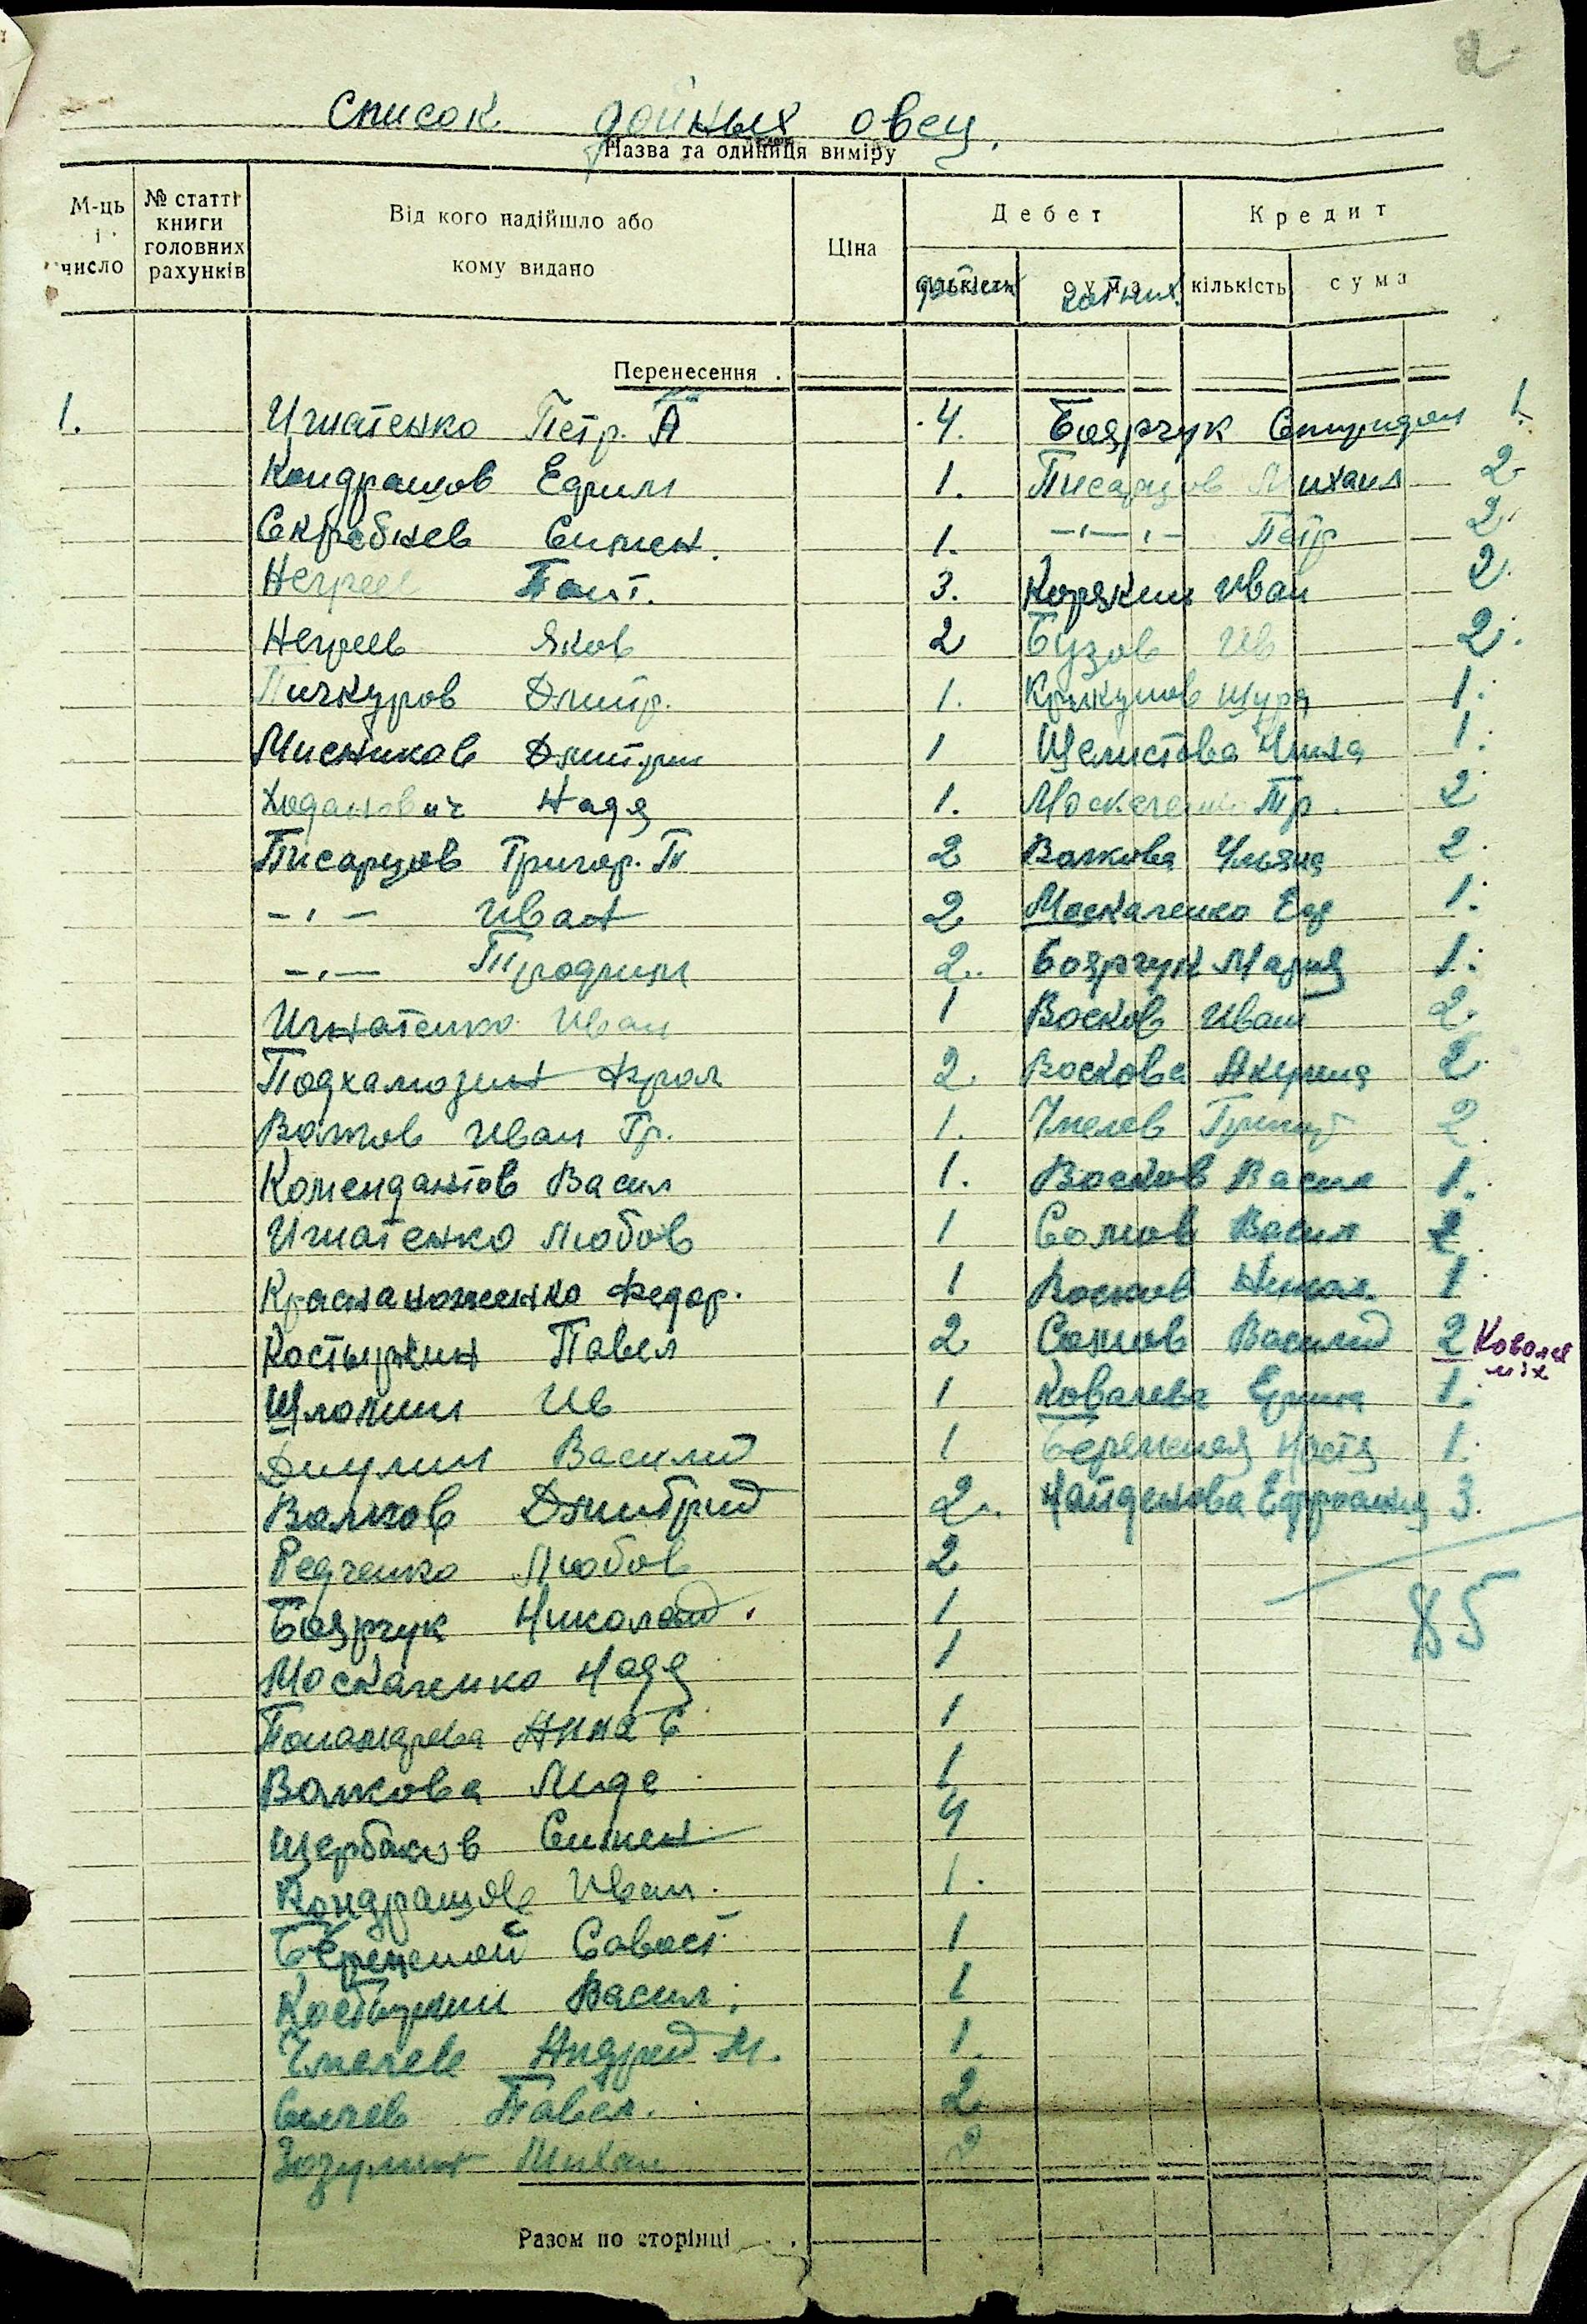 2
Список дойных овец.
Назва та одиниця виміру
М-ць і число
№ статті книги головних рахунків
Від кого надійшло або кому видано
Ціна
Дебет
Кредит
кількість сума кількість сума
Перенесення
1. Игнатенко Петр. А 4. Боярчук Спиридон 1.
Кондрашов Ефим 1. Писарцов Михаил 2
Скребнев Симен. 1. -"-"- Петр 2
Негреев 3. Корякин Иван 2
Негреев Яков 2 Бузов Ив 2
Пичкуров Дмитр. 1. Крикунов Шура 1
Мисников Дмитрии 1 Щелистова Нина 1
Ходанович Надя 1. Пр. 2
Писарцов Григор. П 2 Волкова Ульяна 2
-"- Иван 2 Москаченко 1
-"- Трофим 2. Боярчук Мария 1
Игнатенко Иван 1 Восков Иван 2
Подхамозин Фрол 2. Воскова Акулина 2
Волков Иван Гр. 1. Чмелев Григор 2
Комендантов Васил 1. Восков Васил 1.
Игнатенко Любов 1 Сомов Васил 2
Краснаноженко Федор. 1 Восков 1
Костыркин Павел 2 Сомов Василий 2
Ив 1 Ковалева 1.
Василий 1 1.
Волков Дмитрий 2. Найденова Ефросиния 3.
Редченко Любов 2
Боярчук Николай. 1
85
Москаченко Надя 1
Понамарева Анна С 1
Волкова Лида 1
Щербаков Симен 4
Кондрашов Иван. 1.
Савост 1
Костыркин Васил. 1
Чмелев Андрей М. 1.
Сычев Павел. 2
Зозулин Михаи 2
Разом по сторінці